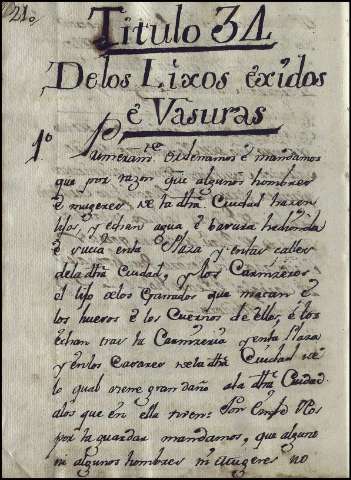 21.
Titulo 34
De los Lixos éxidos
é Vasuras
1º Primeramte. Ordenamos é mandamos
que por razon que algunos hombres
é mugeres de la dha Ciudad hazen
lijos, y echan agua é basura hedionda
é sucia enta Plaza y entas calles
dela dha Ciudad, y los Carnizeros
el lijo delos Ganados que matan é
los huesos é los Cuernos de ellos, é los
echan tras la Carnizeria y enta Plaza
y entos dela dha Ciudad de
lo qual viene gran daño ala dha Ciudad
alos que en ella viven: Por Nos
por la guardar mandamos, que alguno
ni algunos hombres ni Mugeres no